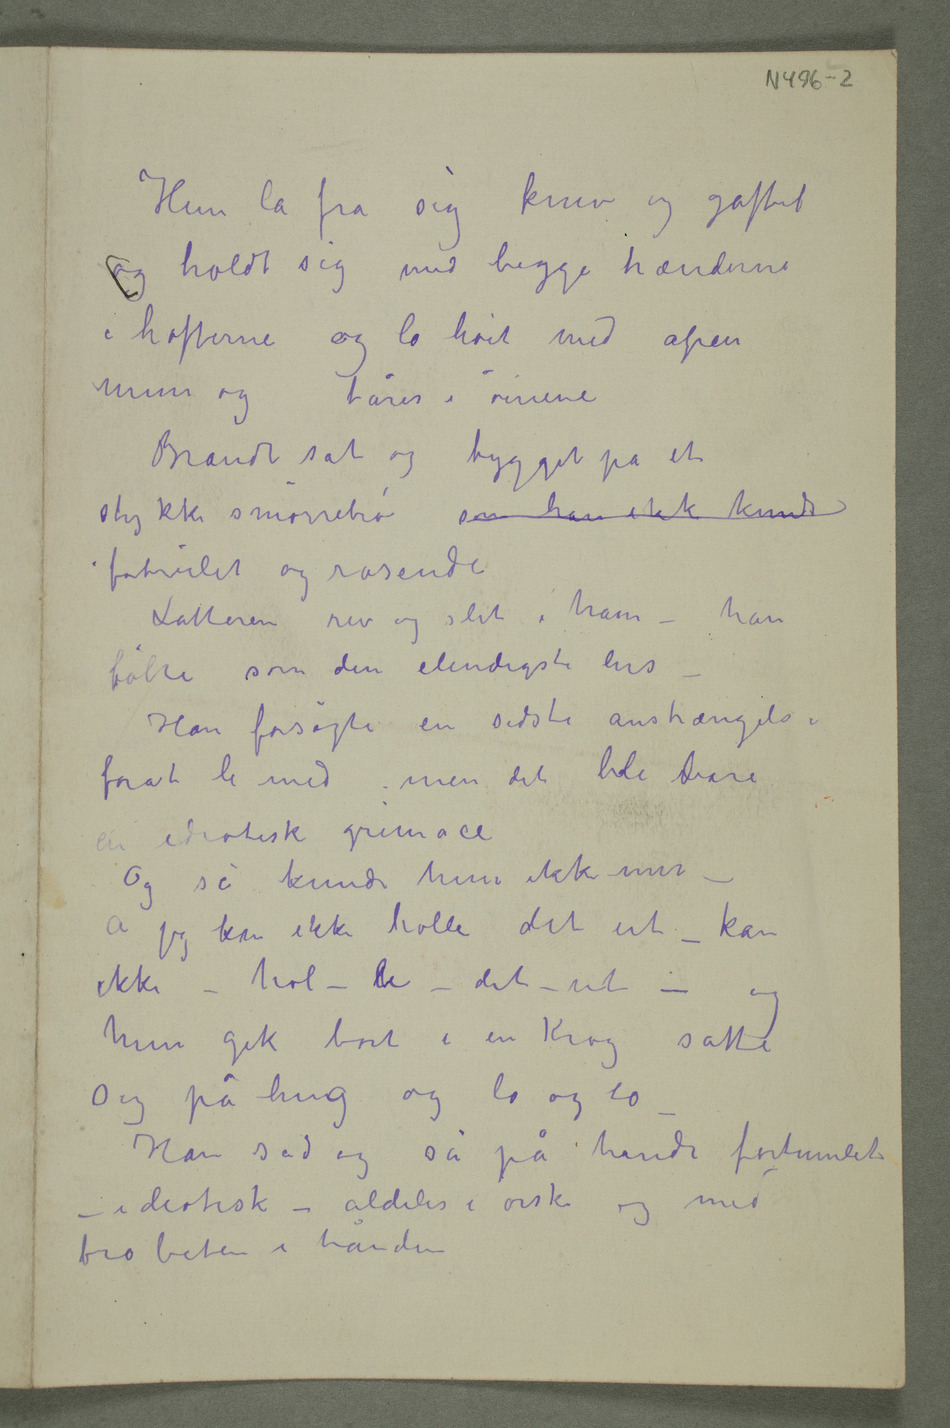 N496-2
Hun la fra sig kniv og gaffel
og holdt sig med begge hænderne
i hofterne og lo höit med apen
mun og tårer i öinene
Brandt sat og tygget på et
stykke smörrebrö som han ikk kunde
fortvilet og rasende
Latteren rev og slet i ham – han
fölte som den elendigste lus –
Han forsögte en sidste anstrængelse
forat le med men det ble bare
en idiotisk grimace
Og så kunde hun ikke mer –
A jeg kan ikke holle det ut – kan
ikke – hol – le – det – ut – og
hun gik bort i en Krog satte
sig på hug og lo og lo –
Han sad og så på hende fortumlet
– idiotisk – aldeles i örske og med
brobeten i hånden